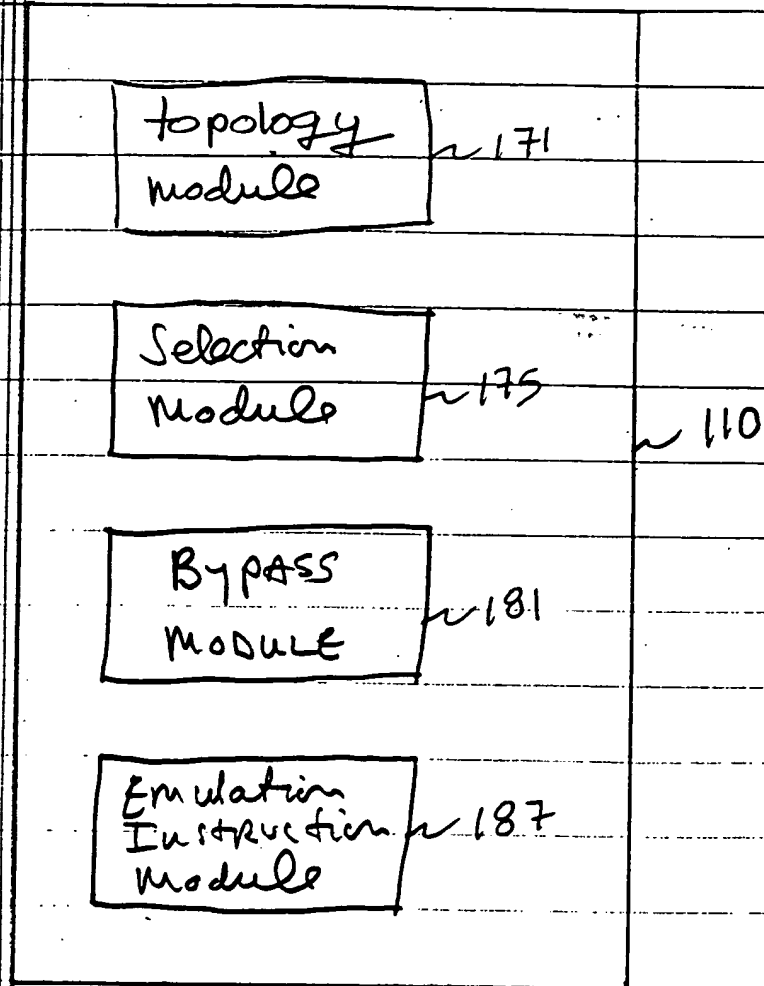 topology
module
171
Selection
Module
175
110
ByPASS
MODULE
181
Emulation
Instruction
Module
187